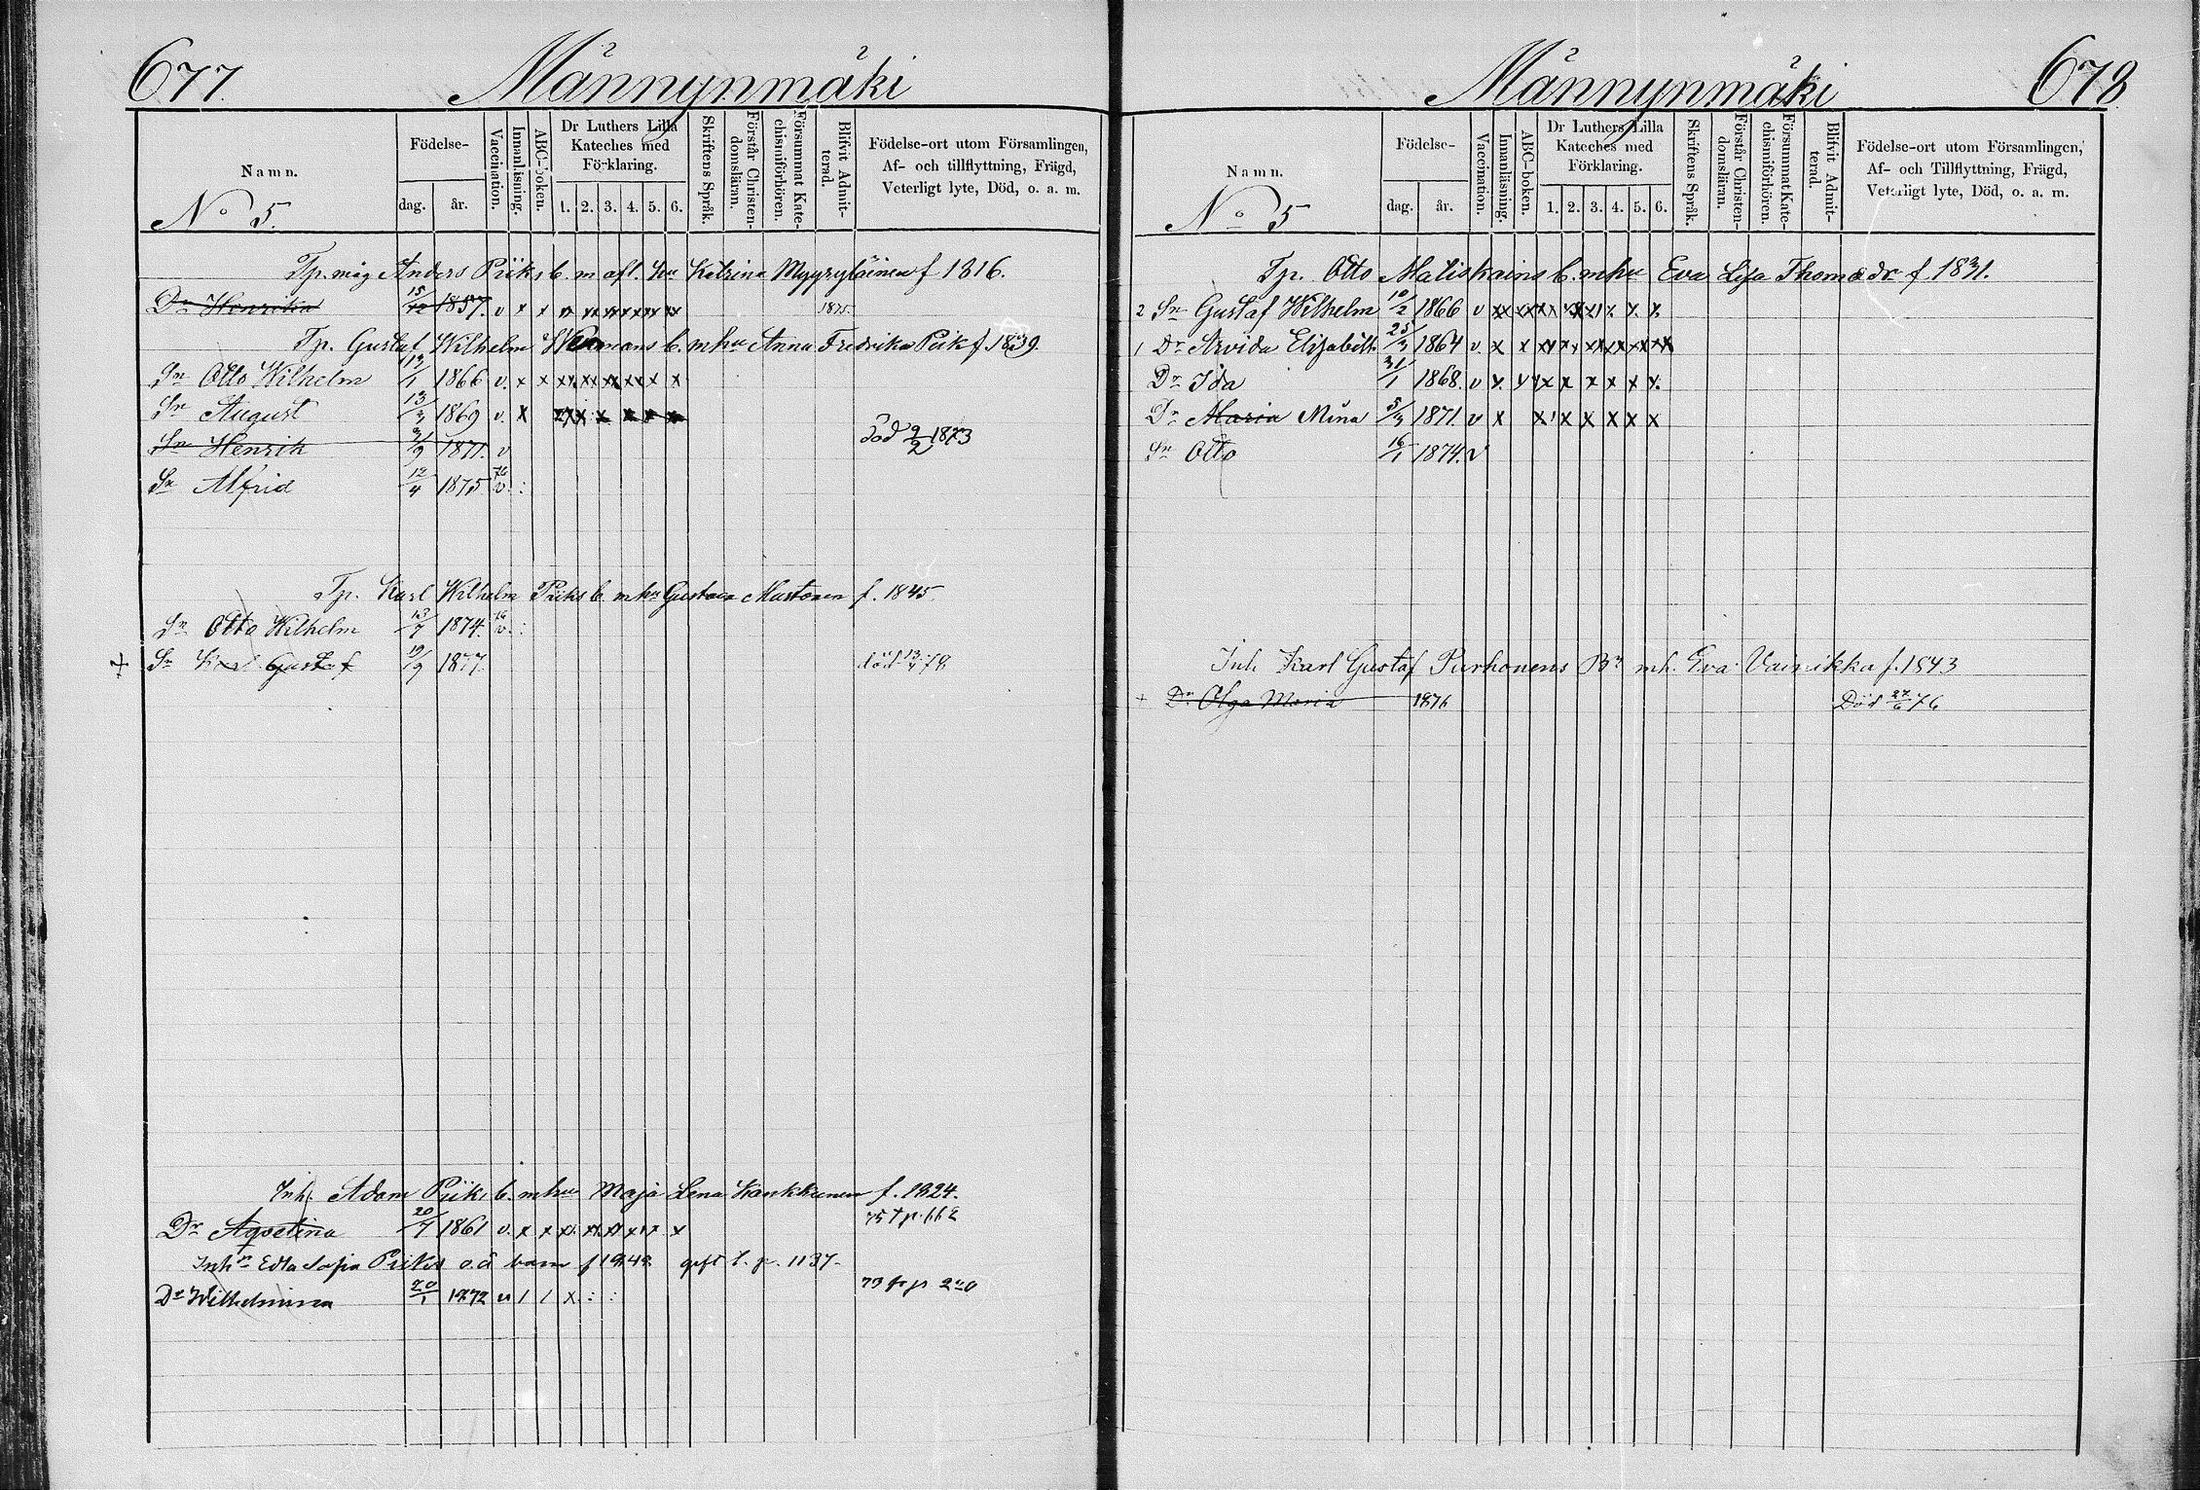 677. Männynmäki
Namn.
Födelse-
dag. år.
Vaccination.
Innanläsning.
ABC-boken.
Dr Luthers Lilla
Kateches med
Förklaring.
1. 2. 3. 4. 5. 6.
Skriftens Språk.
Förstår Christen-
domsläran.
Försummat Kate-
chismiförhören.
Blifvit Admit-
terad.
Födelse-ort utom Församlingen,
Af- och tillflyttning, Frägd,
Veterligt lyte, Död, o. a. m.
No 5.
Tp. måg Anders Piiks b. m afl. hu Katrina Myyryläinen f 1816.
Dr Henrika 15/12 1857. v x x 1875.
Tp. Gustaf Wilhelm b. m hu Anna Fredrika Piik f 1839.
Sn Otto Wilhelm 1866 v. x x xx xx xx xx x x
Sn August 13/3 1869 v. x x x x x x
Sn Henrik 1871. v död 9/2 1873
Sn Alfrid 12/4 1875 v.
Tp. Karl Wilhelm Piiks b. m hu Gustava Mustonen f. 1845
Sn Otto Wilhelm 13/7 1874. v.
+ Sn Gustaf 19/9 1877. död 78
Inh. Adam Piiks b. m hu Maja Lena Kankkunen f. 1824.
Dr Agostina 20/7 1861 v. x x 75 t p. 662
Inh:n Edla Sofia Piiks o. ä barn f 1848 gift l. p. 1137.
Dr Wilhelmina 20/1 1872 v / / x : :
678 Männynmäki
Namn.
Födelse-
dag. år.
Vaccination.
Innanläsning.
ABC-boken.
Dr Luthers Lilla
Kateches med
Förklaring.
1. 2. 3. 4. 5. 6.
Skriftens Språk.
Förstår Christen-
domsläran.
Försummat Kate-
chismiförhören.
Blifvit Admit-
terad.
Födelse-ort utom Församlingen,
Af- och Tillflyttning, Frägd,
Veterligt lyte, Död, o. a. m.
No 5
Tp. Otto Matiskains b. m hu Eva Lisa Thomædr f. 1831.
2 Sn Gustaf Wilhelm 10/2 1866 v
1 Dr Arvida Elisabeth 25/3 1864 v.
Dr Ida 31/1 1868. v
Dr Maria Mina 5/3 1871. v x x x x x x x
Sn Otto 16/1 1874. v
Inh Karl Gustaf Purhonens Bn m h. Eva Vainikka f. 1843
+ Dr Olga Maria 1876 Död 27/6 76